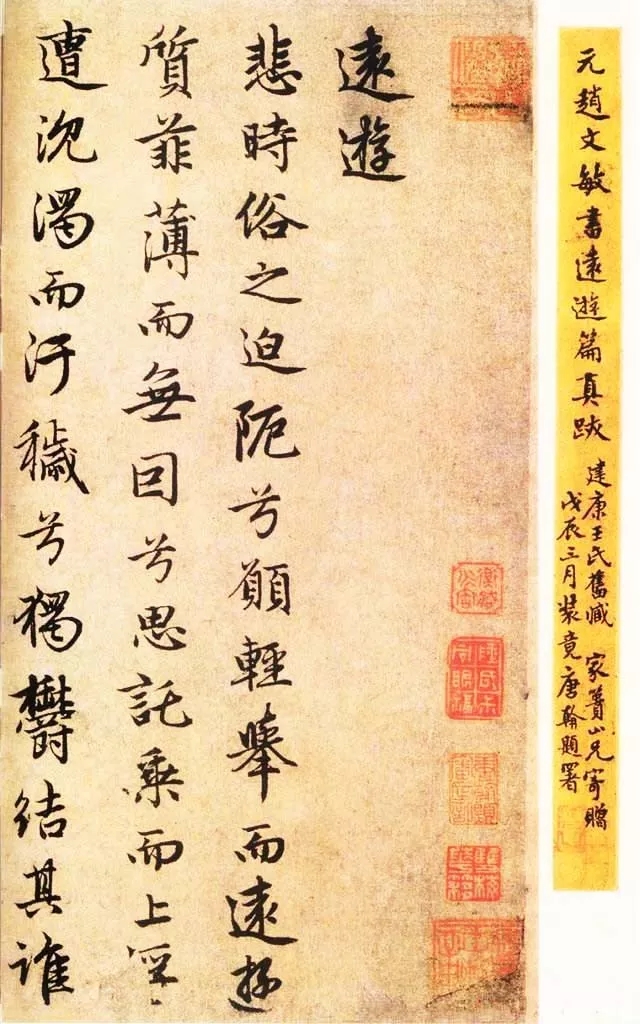 元趙文敏書遠遊篇真跋
建康王氏舊臧 家蕢山兄寄贈
戊辰三月裝竟唐翰題署
遠遊
悲時俗之迫阨兮願輕舉而遠遊
質菲薄而無囙兮思託乘而上浮
遭沈濁而汙穢兮獨鬱結其誰